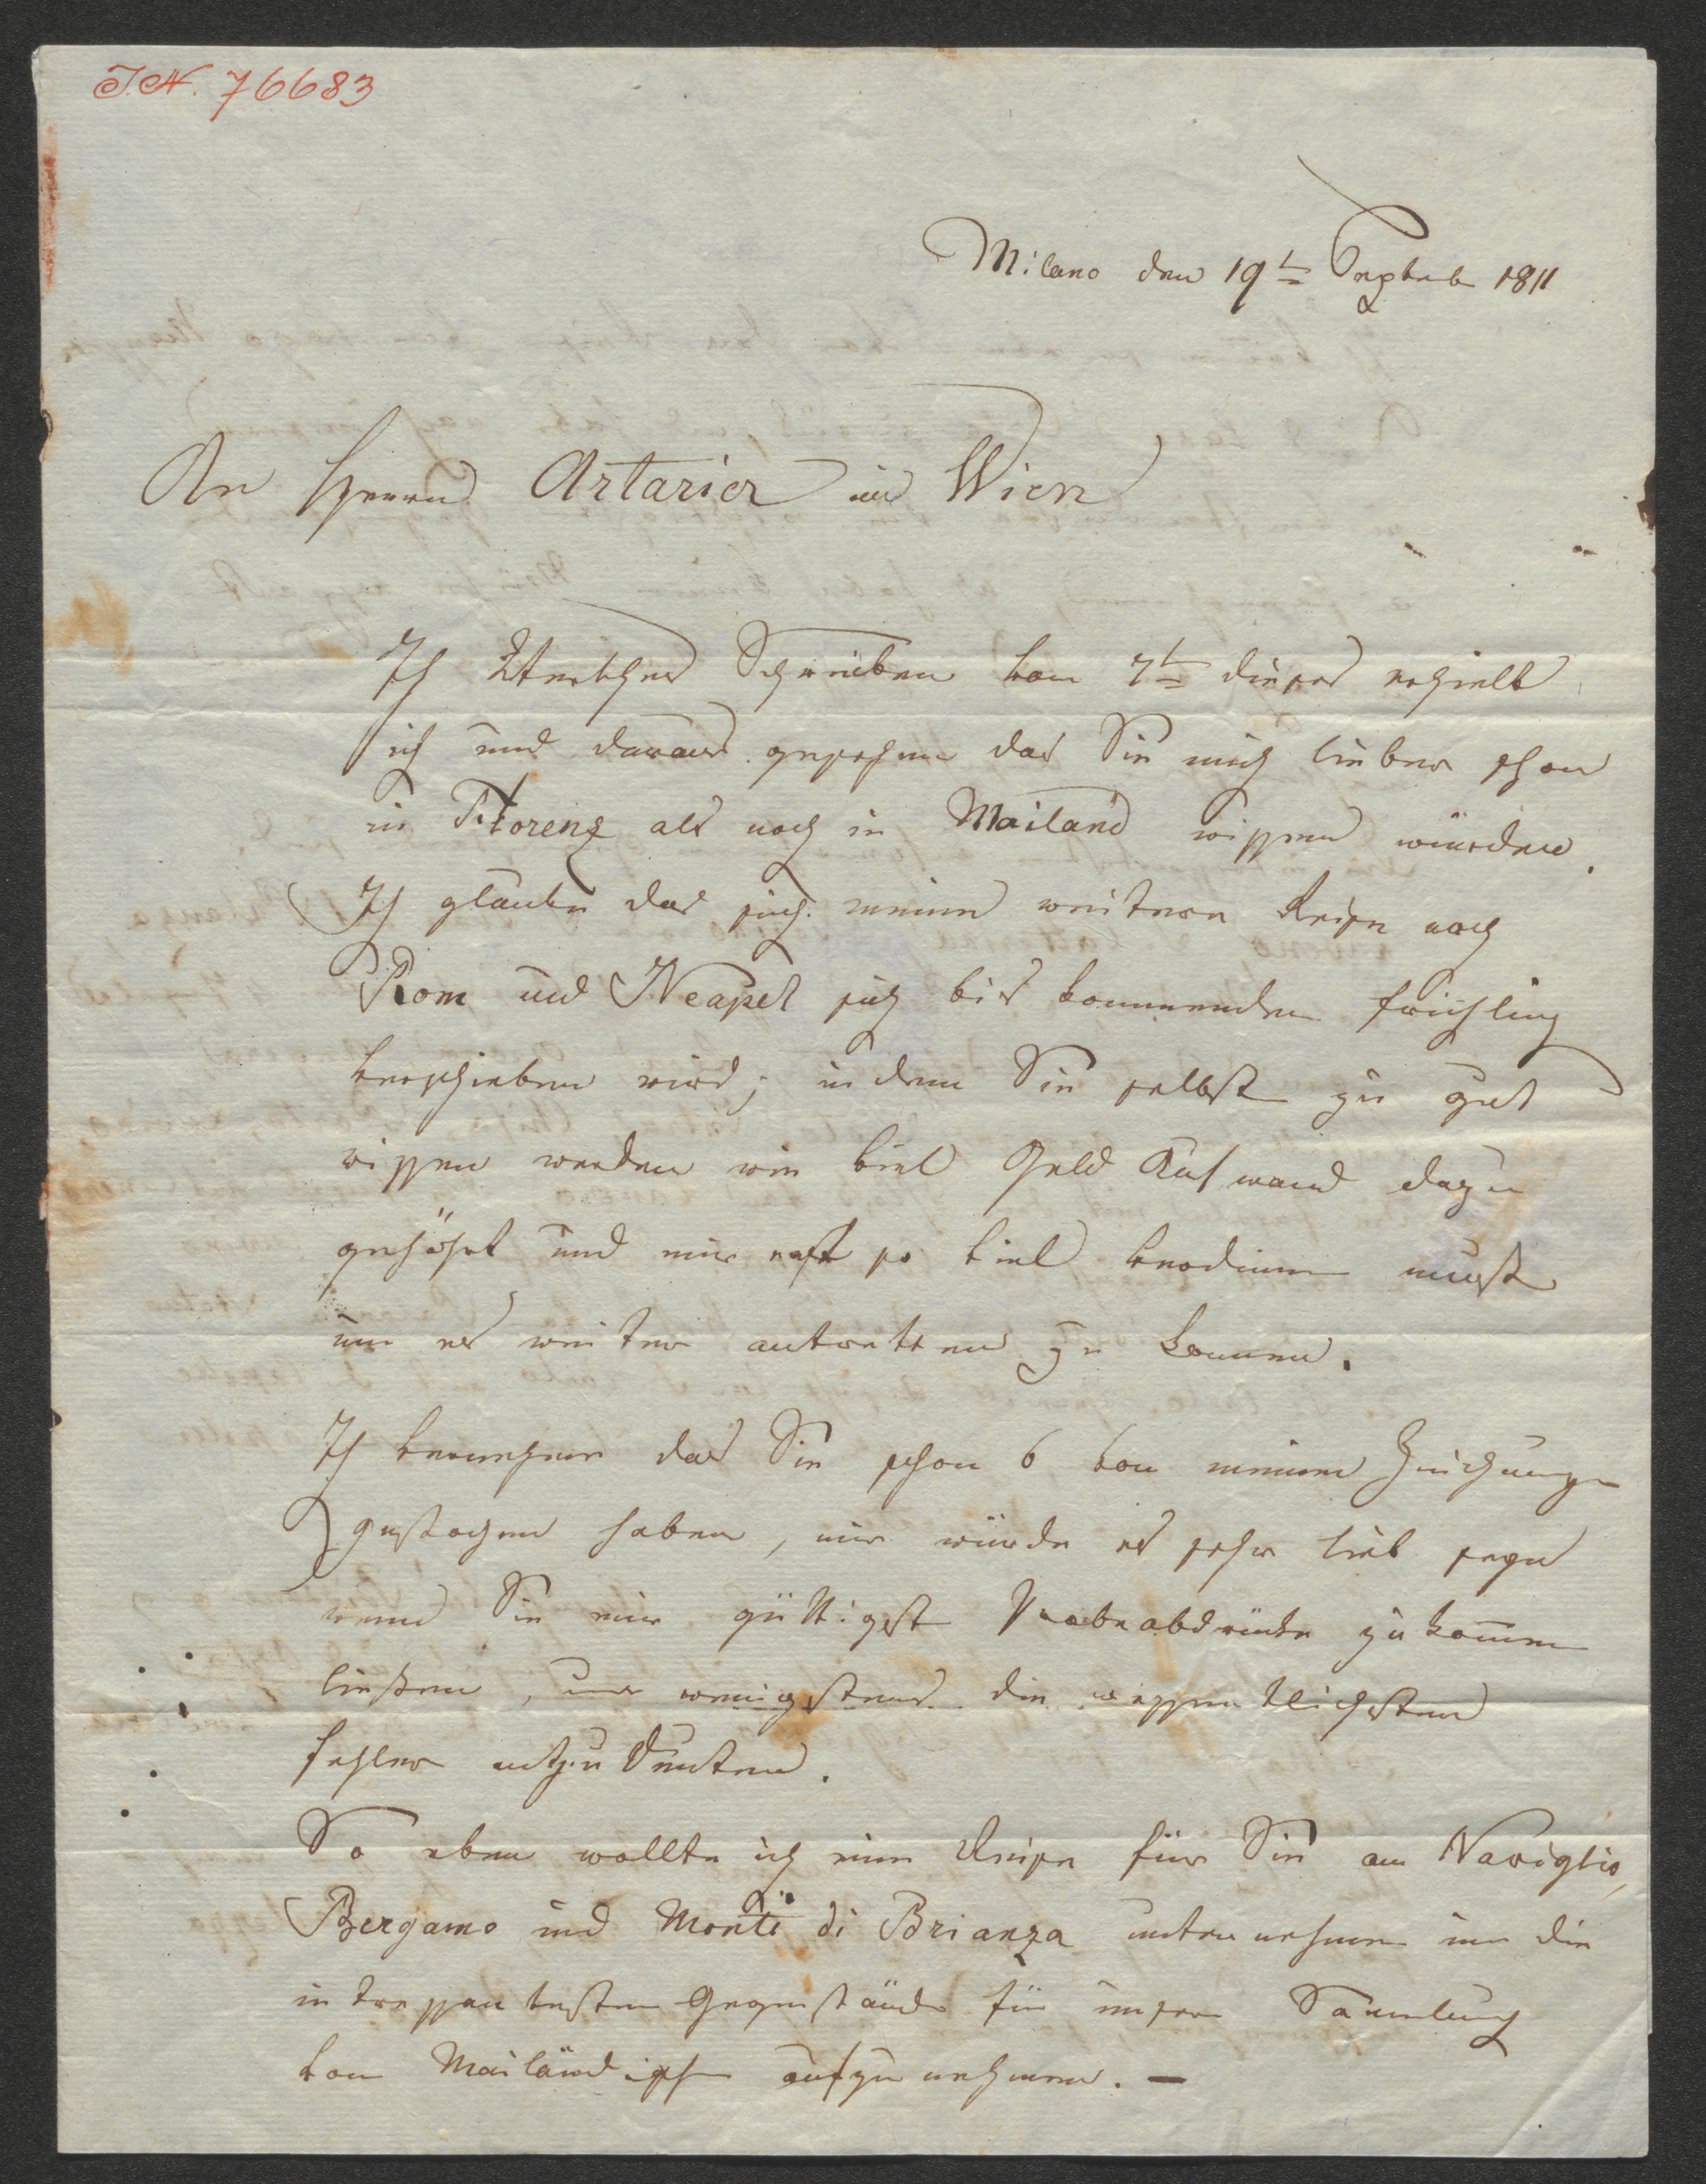 I.N. 76683
Milano den 19t Septeb 1811
An Herrn Artaria in Wien
Ihr Werthes Schreiben von 7t dieses erhielt
ich und daraus gesehen das Sie mich lieber schon
in Florenz als noch in Mailand wissen würden.
Ich glaube das sich meine weitere Reise nach
Rom und Neapel sich bis kommenden frühling
verschieben wird; in dem Sie selbst zu gut
wissen werden wie viel Geld Aufwand dazu
gehöhrt und mir erst so viel verdienen must
um es weiter antretten zu können.
Ich vernehme das Sie schon 6 von meinen Zeichungen
gestochen haben, mir würde es sehr lieb seyn
wenn Sie mir güttigst Probeabdrücke zu kommen
liessen, um wenigstens die wessentlichsten
fehler anzudeuten.
So eben wollte ich eine Reise für Sie am Naviglio,
Bergamo und Monti di Brianza unternehmen um die
intressantesten Gegenstände für unsere Samlung
von Mailändischen aufzunehmen. —